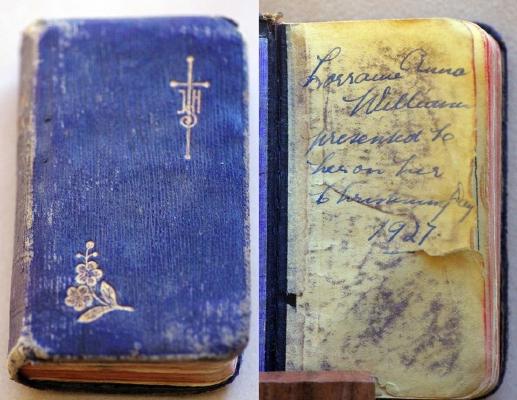 IHS
Lorraine Anna
Williams
presented to
her on her
Christening Day
1927